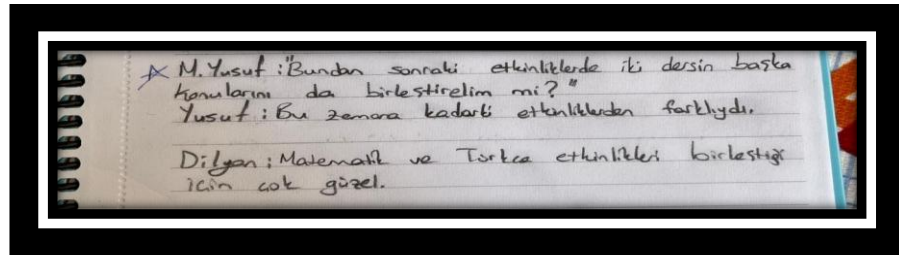 M. Yusuf : "Bundan sonraki etkinliklerde iki dersin başka
konularını da birleştirelim mi? "
Yusuf : Bu zamana kadarki etkinliklerden farklıydı.
Dilyan : Matematik ve Türkçe etkinlikleri birleştiği
için çok güzel.